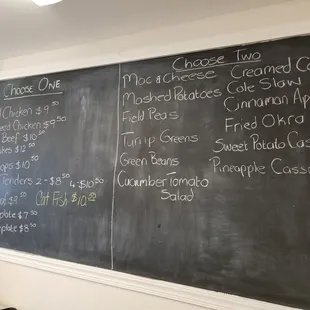 Choose One
Chicken $9.50
Chicken $9.50
Beef $10.50
$12.50
$10.50
Tenders 2-$8.50 4 $10.50
$9.50 Cat Fish $10.00
plate $7.50
plate $8.50
Choose Two
Mac & Cheese
Mashed Potatoes
Field Peas
Turnip Greens
Green Beans
Cucumber Tomato
Salad
Creamed
Cole Slaw
Cinnamon
Fried Okra
Sweet Potato
Pineapple